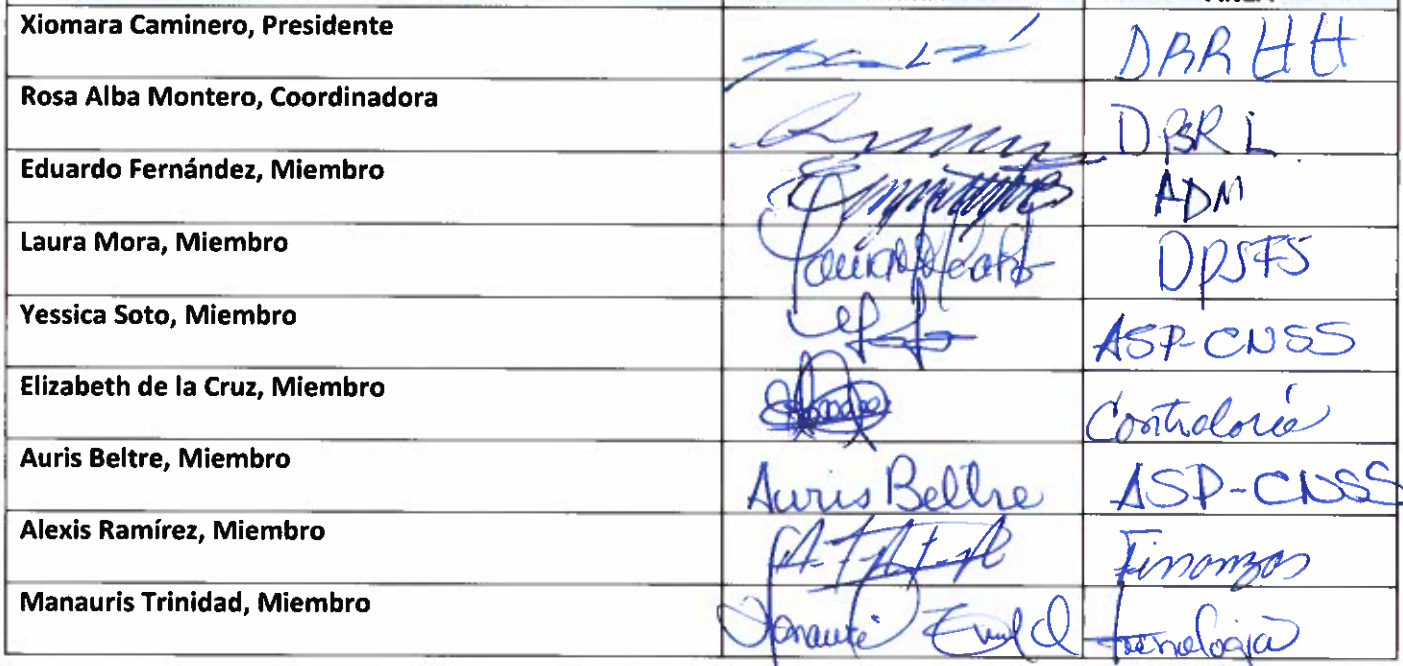 Xiomara Caminero, Presidente DRRHH
Rosa Alba Montero, Coordinadora
Eduardo Fernández, Miembro ADM
Laura Mora, Miembro DPSFS
Yessica Soto, Miembro ASP-CNSS
Elizabeth de la Cruz, Miembro Contraloría
Auris Beltre, Miembro Auris Beltre ASP-CNSS
Alexis Ramírez, Miembro Finanzas
Manauris Trinidad, Miembro Tecnología